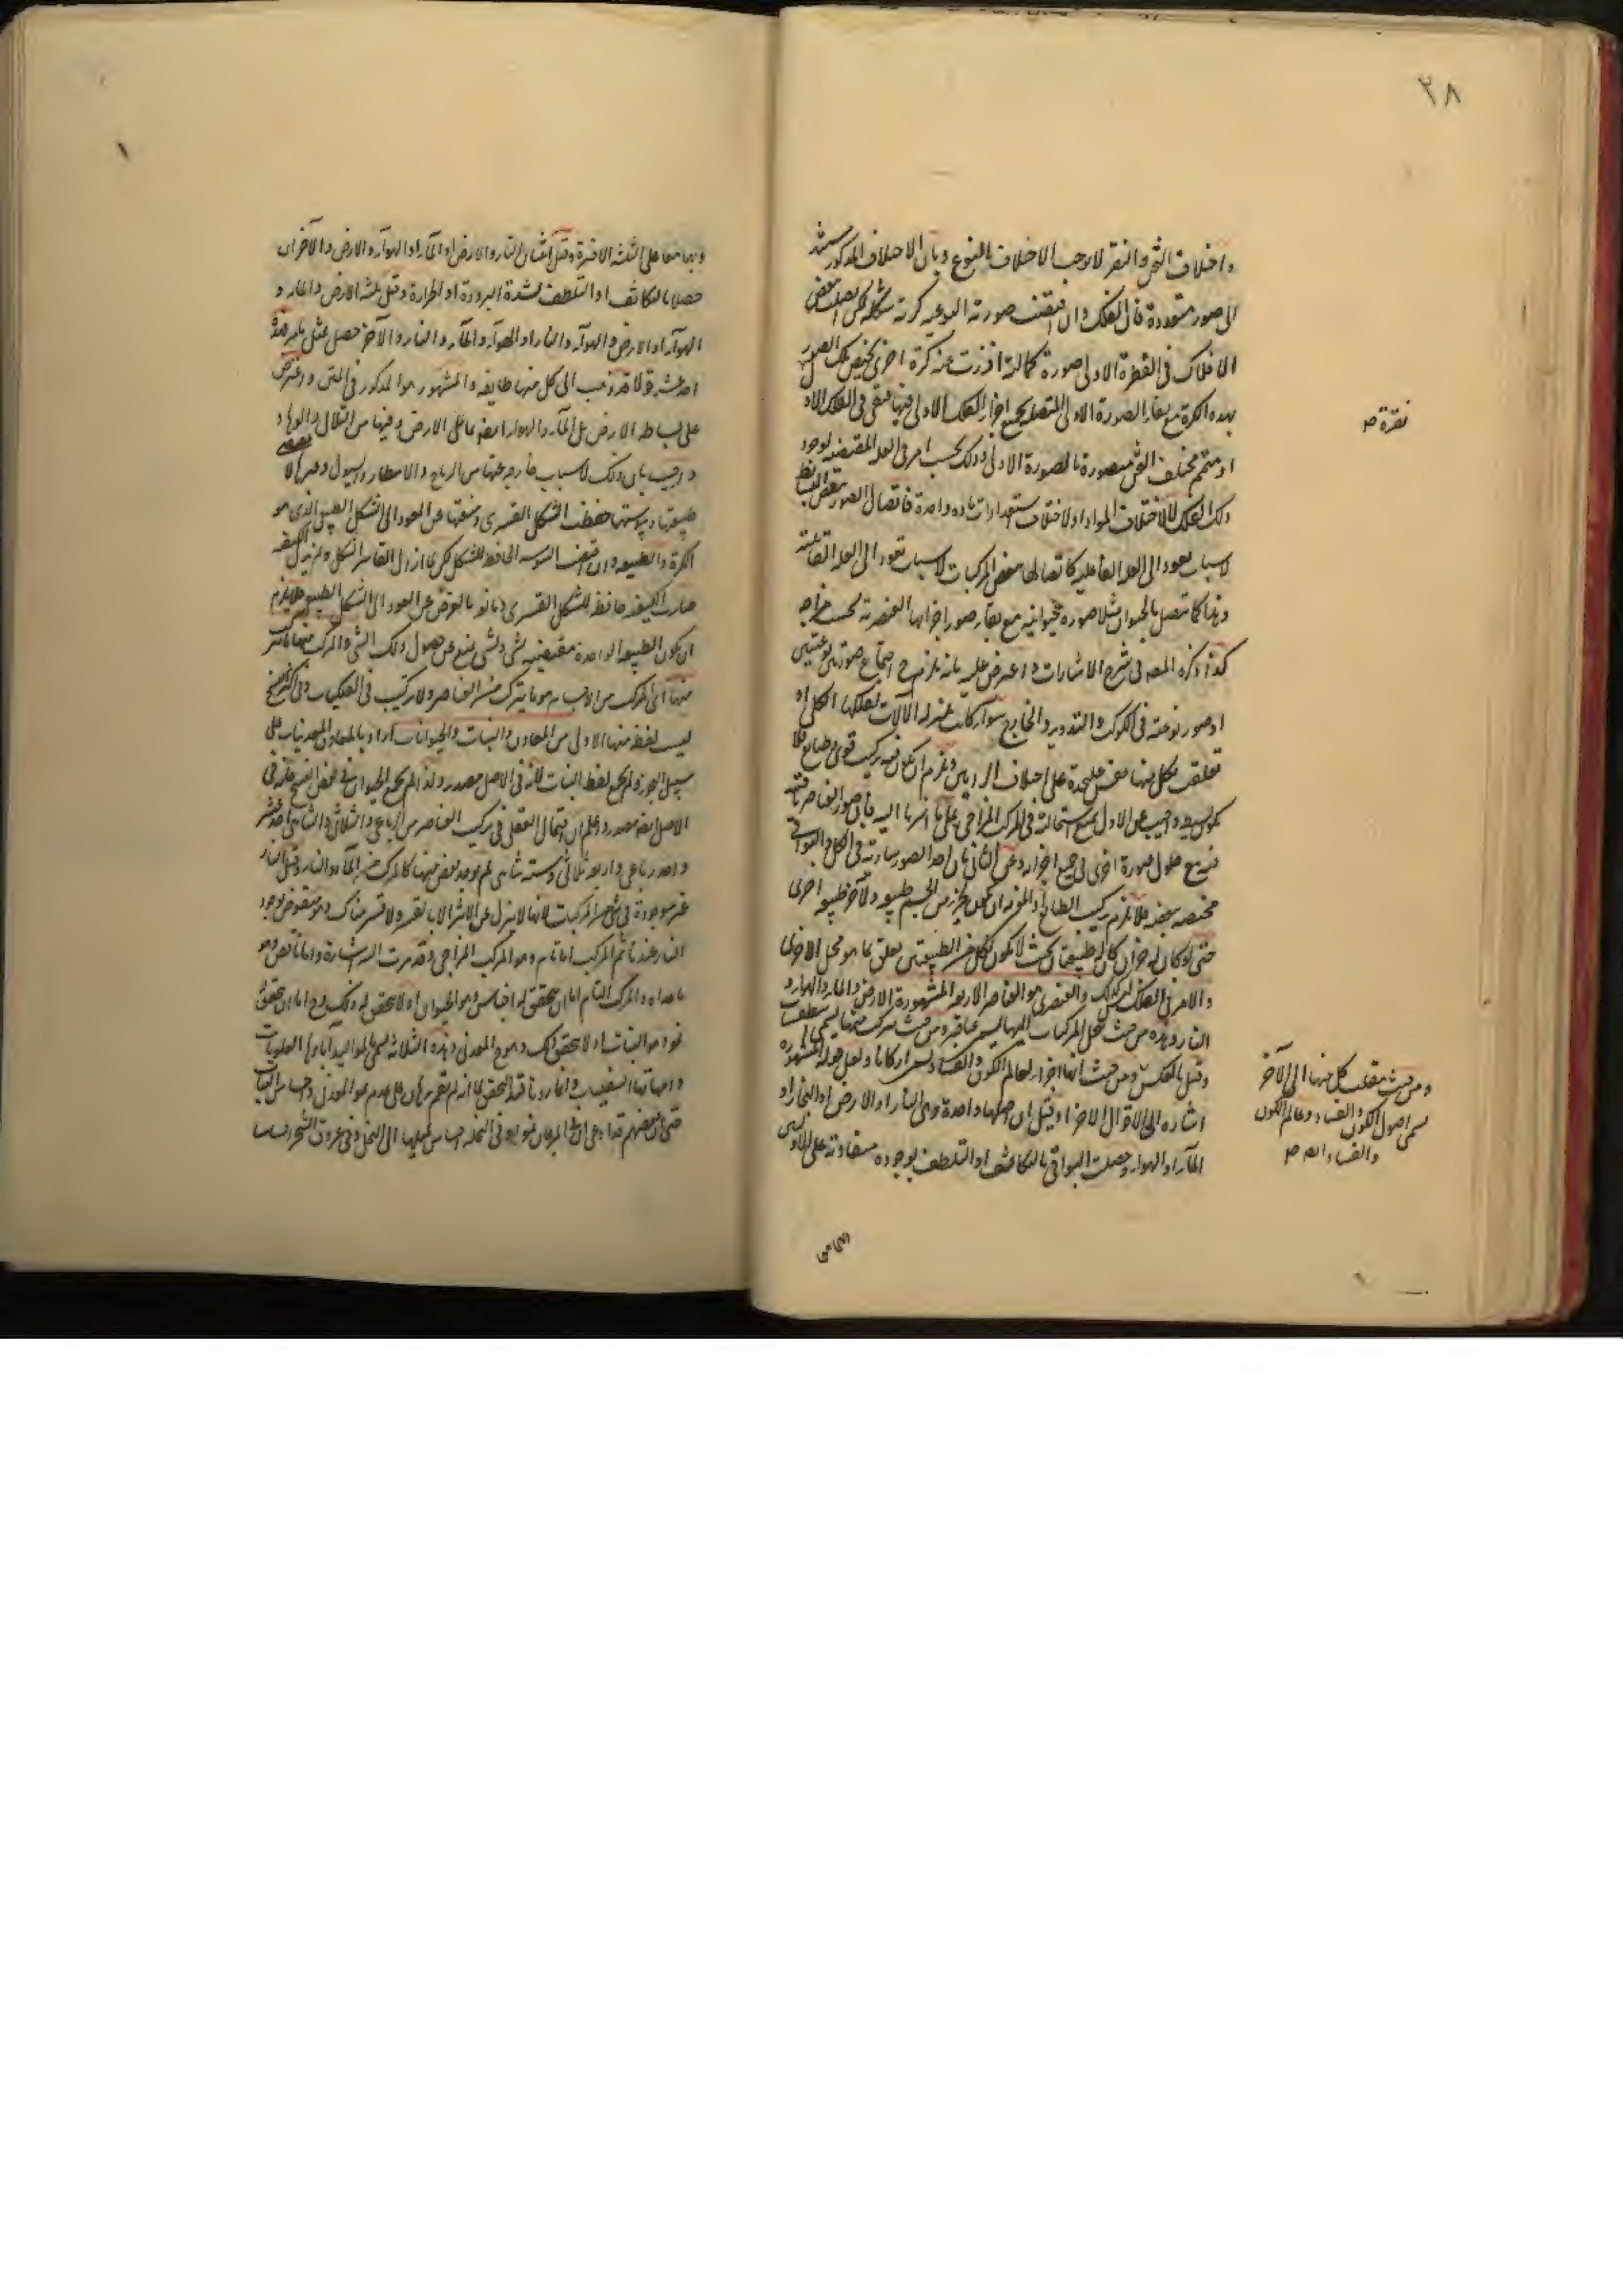 ٢٨
واختلاف الثخن والنقر لا يوجب الاختلاف بالنوع وبان الاختلاف المذكور يستند
الى صور متعددة فان الفلك وان اقتضت صورته النوعية كرته شكله لكن اتصل ببعض
الافلاك في الفطرة الاولى صورة كمالية افرزت عنه كرة اخرى تختص تلك الصورة
بهذه الكرة مع بقاء الصورة الاولى المتصلة بجميع اجزاء الفلك الاولى فيها فبقى في الفلك الاول
نقرة صح
او متمم مختلف الثخن متصورة بالصورة الاولى وذلك بحسب امر في العلة المقتضية لوجود
ذلك الفلك لا لاختلاف المواد او لاختلاف استعدادات مادة واحدة فاتصال الصور ببعض البسائط
لاسباب تعود الى العلة الفاعلية كاتصالها ببعض المركبات لاسباب تعود الى العلة القابلية
وهذا كما تتصل بالحيوان مثلا صورة حيوانية مع بقاء صور اجزائها العنصرية بحسب مزاجه
كذا ذكره المص في شرح الاشارات واعترض عليه بانه يلزم ح اجتماع صورتين نوعيتين
او صور نوعية في الكوكب والتدوير والخارج سواء كانت بمنزلة الآلات لفلكها الكلى او
تعلقت بكل منها نفس عليحدة على اختلاف الرايين ويلزم ان يكون فيه تركيب قوى وطبائع فلا
يكون بسيطا واجيب عن الاول بمنع استحالته في المركب المزاجى على ما اشرنا اليه فان صور العناصر باقية
فيه مع حلول صورة اخرى في جميع اجزائه وعن الثانى بان احد الصور سارية في الكل والبواقى
مختصة ببعضه فلا يلزم تركيب الطبائع اذ المفهوم ان يكون لجزء من الجسم طبيعة ولآخر طبيعة اخرى
حتى لو كان له جزءان كان له طبيعتان بحيث لا يكون لكل من الطبيعتين تعلق بما هو محل الاخرى
والامر في الفلك ليس كذلك والعنصرى هو العناصر الاربعة المشهورة الارض والماء والهواء و
النار وهذه من حيث تنحل المركبات اليها تسمى عناصر ومن حيث تتركب منها تسمى اسطقسات
وقيل بالعكس ومن حيث انها اجزاء لعالم الكون والفساد تسمى اركانا ولعل قوله المشهورة
ومن حيث ينقلب كل منها الى الآخر
يسمى اصول الكون والفساد وعالم الكون
والفساد صح
اشارة الى الاقوال الاخر اذ قيل ان اصلها واحدة وهى النار او الارض او البخار او
الماء او الهواء وحصلت البواقى بالتكاثف او التلطف بوجوه متفاوتة على الاولين
وبهما معا على الثلثة الاخيرة وقيل اثنان النار والارض او الماء او الهواء والارض والآخران
حصلا بالتكاثف او التلطف لشدة البرودة او الحرارة وقيل ثلثة الارض والماء و
الهواء او الارض والهواء والنار او الهواء والماء والنار والآخر حصل بمثل ما مر فهذه
احد عشر قولا قد ذهب الى كل منها طايفة والمشهور هو المذكور في المتن واعترض
على بساطة الارض بل الماء والهواء ايضا بما على الارض وفيها من التلال والوهاد
واجيب بان ذلك لاسباب خارجة عنها من الرياح والامطار والسيول وغيرها لا
طبيعتها ويبوستها حفظت الشكل القسرى ومنعتها عن العود الى الشكل الطبيعى الذى هو
الكرة والطبيعة وان اقتضت اليبوسة الحافظة للشكل لكن اذا زال القاسر الشكل ولم يزل الكيفية
صارت الكيفية حافظة للشكل القسرى ومانعة بالعرض عن العود الى الشكل الطبيعى فلا يلزم
ان يكون الطبيعة الواحدة مقتضية لشىء ولشىء يمنع عن حصول ذلك الشىء والمركب منها ما يتركب
منها اى المركب من الاجسام هو ما يتركب من العناصر ولا تركيب في الفلكيات وفى اكثر النسخ
ليست لفظ منها الاولى من المعادن والنبات والحيوانات اراد بالمعادن المعدنيات على
سبيل التجوز ولم يجمع لفظ النبات لانه في الاصل مصدر ولذا لم يجمع الحيوان في بعض النسخ فانه في
الاصل ايضا مصدر واعلم ان احتمال العقل في تركيب العناصر من الرباعى والثلاثى والثنائى احد عشر
واحد رباعى واربعة ثلاثى وستة ثنائى لم يوجد بعض منها كالمركب من الماء والنار وقيل النار
غير موجودة في شىء من المركبات لانها لا ينزل عن الاثير الا بالقسر ولا قسر هناك وهو منقوض بوجود
النار عندنا ثم المركب اما تام وهو المركب المزاجى وقد مرت اليه الاشارة واما ناقص وهو
ما عداه والمركب التام اما ان يتحقق له احساس وهو الحيوان او لا يتحقق له ذلك وح اما ان يتحقق له
نمو وهو النبات او لا يتحقق ذلك وهو ح المعدنى وهذه الثلاثة تسمى بالمواليد آباؤها العلويات
وامهاتها السفليات وانما زدنا قيد التحقق لما انه لم يقم برهان على عدم نمو المعدنى واحساس النبات
حتى ان بعضهم قد ادعى ان في المرجان نموا وفى النخلة احساسا لميلها الى النخل وفى عروق الشجر